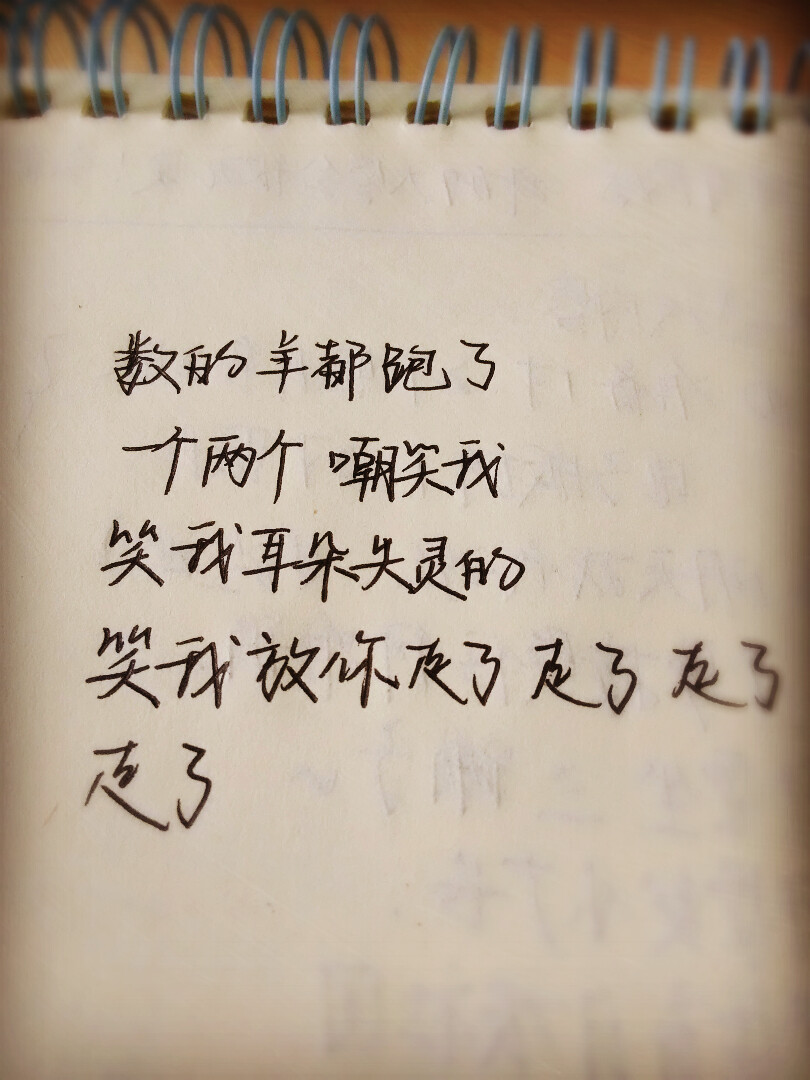 数的羊都跑了
一个两个嘲笑我
笑我耳朵失灵的
笑我放你走了走了走了
走了